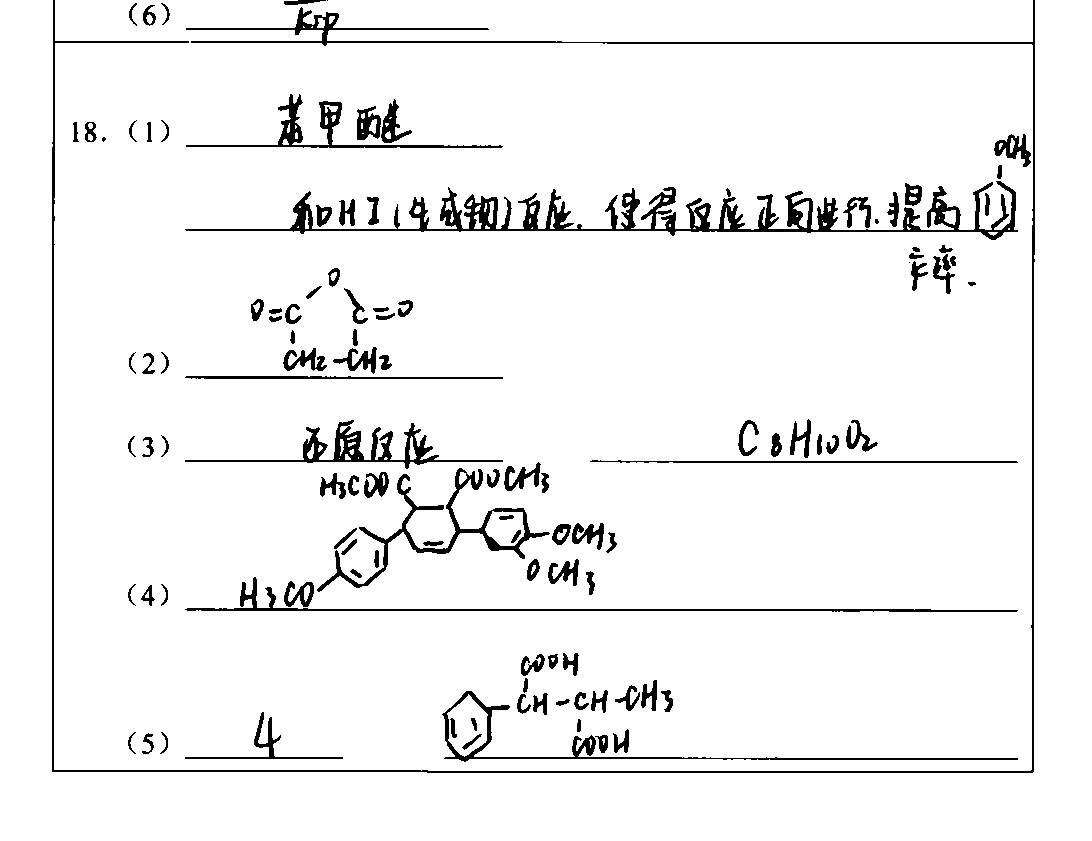 (6) Ksp
OCH3
18. (1) 苯甲醚
和HI(生成物)反应,使得反应正向进行,提高
产率.
O
O=C C=O
(2) CH2-CH2
(3) 还原反应 C8H10O2
H3COOC COOCH3
OCH3
OCH3
(4) H3CO
COOH
CH-CH-CH3
(5) 4 COOH